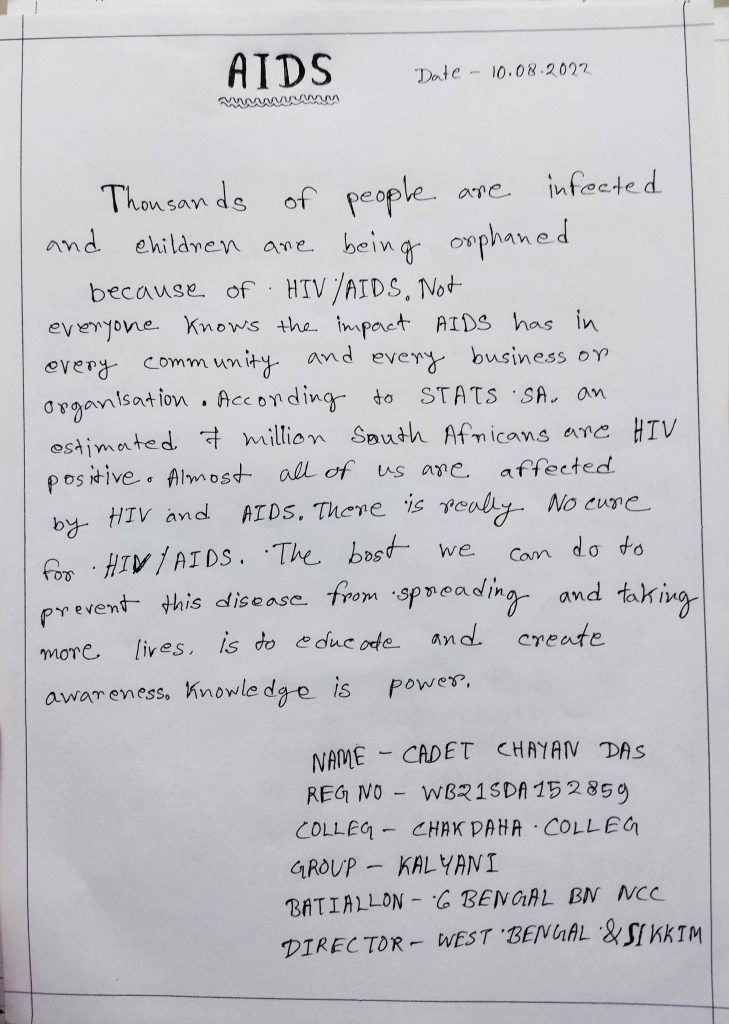 AIDS
Date - 10.08.2022
Thousands of people are infected
and children are being orphaned
because of HIV/AIDS. Not
everyone knows the impact AIDS has in
every community and every business or
organisation. According to STATS SA, an
estimated 7 million South Africans are HIV
positive. Almost all of us are affected
by HIV and AIDS. There is really No cure
for HIV/AIDS. The best we can do to
prevent this disease from spreading and taking
more lives. is to educate and create
awareness. Knowledge is power.
NAME - CADET CHAYAN DAS
REG NO - WB21SDA152859
COLLEG - CHAKDAHA COLLEG
GROUP - KALYANI
BATIALLON - 6 BENGAL BN NCC
DIRECTOR - WEST BENGAL & SIKKIM